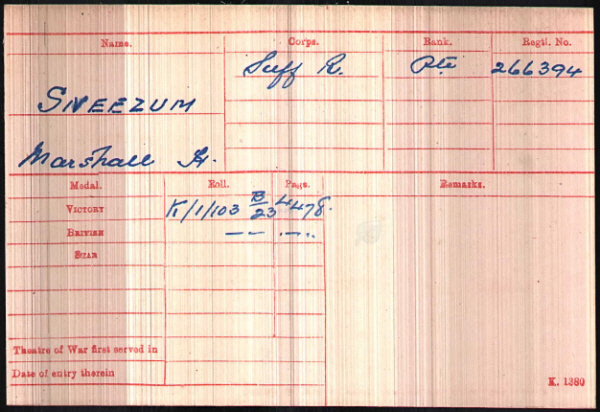 Name. Corps. Rank. Regtl. No.
Suff R. Pte 266394
SNEEZUM
Marshall H.
Medal. Roll. Page. Remarks.
VICTORY K/1/103 B/23 4478.
BRITISH -- -.--
STAR
Theatre of War first served in
Date of entry therein
K. 1380